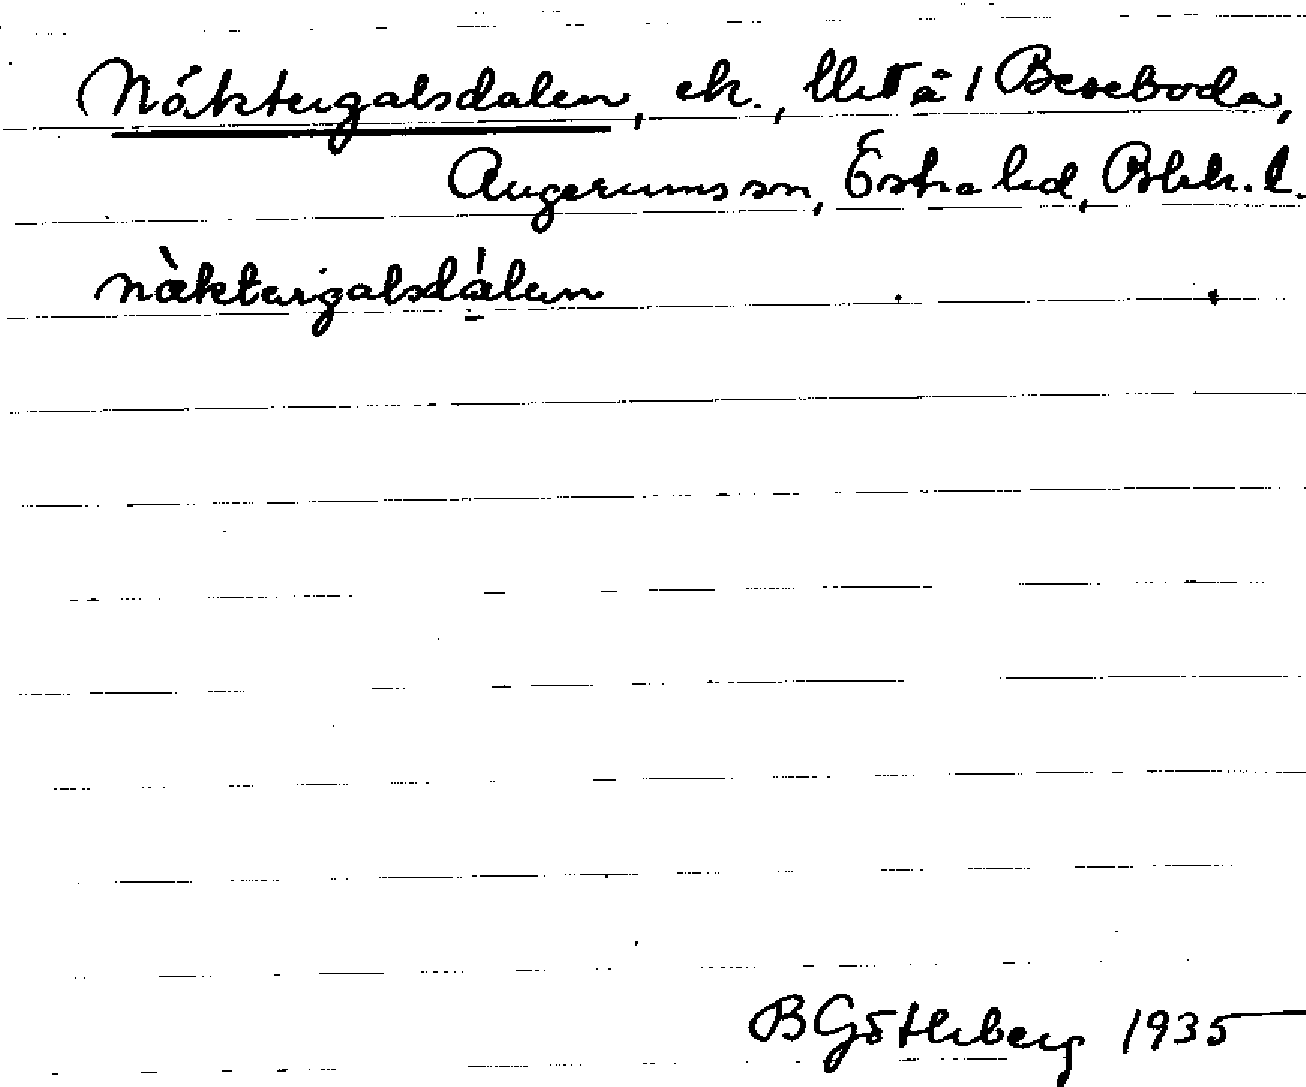 Näktergalsdalen, ek., lht å 1 Bereboda,
Augerums sn, Östra hd, Blek. l.
nàktergalsdálen
B Götherberg 1935